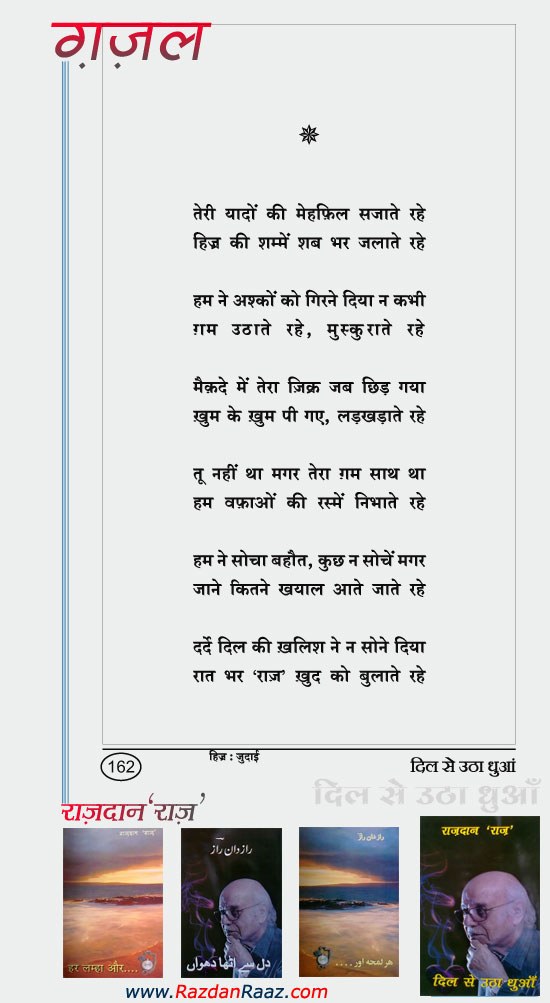 ग़ज़ल
तेरी यादों की मेहफ़िल सजाते रहे
हिज्र की शम्में शब भर जलाते रहे
हम ने अश्कों को गिरने दिया न कभी
ग़म उठाते रहे, मुस्कुराते रहे
मैक़दे में तेरा ज़िक्र जब छिड़ गया
ख़ुम के ख़ुम पी गए, लड़खड़ाते रहे
तू नहीं था मगर तेरा ग़म साथ था
हम वफ़ाओं की रस्में निभाते रहे
हम ने सोचा बहौत, कुछ न सोचें मगर
जाने कितने खयाल आते जाते रहे
दर्दे दिल की ख़लिश ने न सोने दिया
रात भर ‘राज़’ ख़ुद को बुलाते रहे
162 हिज्र : जुदाई दिल से उठा धुआं
दिल से उठा धुआँ
राज़दान ‘राज़’
राज़दान ‘राज़’
हर लम्हा और....
رازدان رازؔ
دل سے اٹھا دھواں
رازدان رازؔ
ہر لمحہ اور....
राज़दान ‘राज़’
दिल से उठा धुआँ
www.RazdanRaaz.com